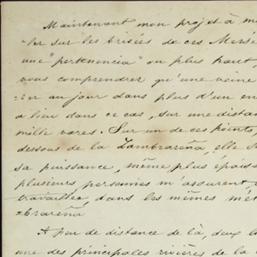 Maintenant mon projet à m
ler sur les brisées de ces Messi
une "pertenencia" ou plus haut,
vous comprendrez qu'une veine
rer au jour dans plus d'un en
a lieu dans ce cas, sur une distan
mille vares. Sur un de ces points,
dessous de la Zambrareña, elle
sa puissance, même plus épais
plusieurs personnes m'assurent
travaillée, dans les mêmes mét
brareña
A peu de distance de là, deux l
une des principales rivières de la